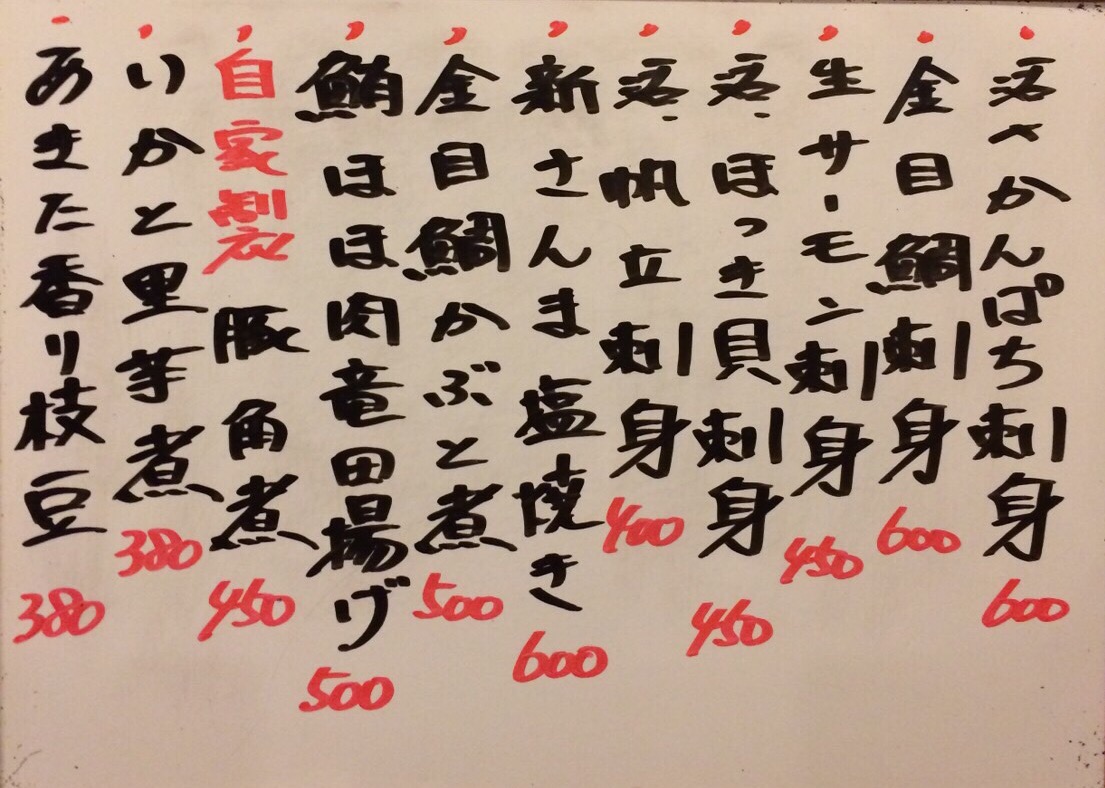 活〆かんぱち刺身 600
金目鯛刺身 600
生サーモン刺身 450
活ほっき貝刺身 450
活帆立刺身 400
新さんま塩焼き 600
金目鯛かぶと煮 500
鮪ほほ肉竜田揚げ 500
自家製 豚角煮 450
いかと里芋煮 380
あきた香り枝豆 380